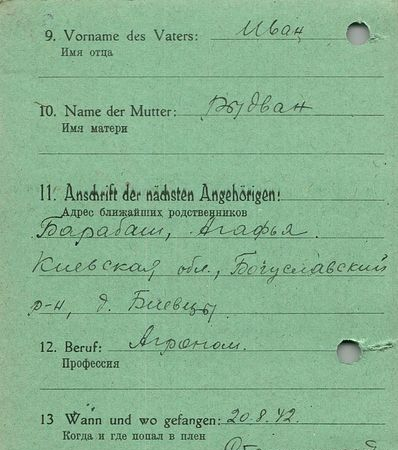 9. Vorname des Vaters: Иван
Имя отца
10. Name der Mutter: Рыдван
Имя матери
11. Anschrift der nächsten Angehörigen:
Адрес ближайших родственников
Барабаш, Агафья.
Киевская обл., Богуславский
р-н, д. Биевцы.
12. Beruf: Агроном.
Профессия
13 Wann und wo gefangen: 20.8.42.
Когда и где попал в плен